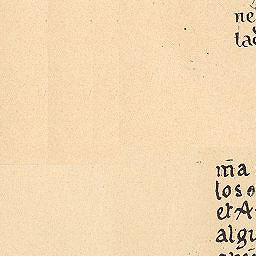 ne
ta
m̃a
los o
et A
algu